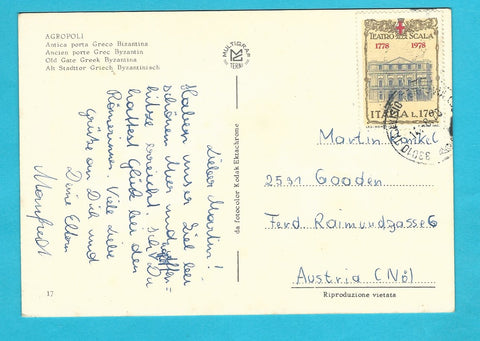 AGROPOLI
Antica porta Greco Bizantina
Ancien porte Grec Byzantin
Old Gate Greek Byzantine
Alt Stadttor Griech Byzantinisch
MULTIGRAF
TERNI
TEATRO ALLA SCALA
1778 1978
ITALIA L. 170
Lieber Martin!
Haben unser Ziel bei
schönem Meer und
hitze erreicht. Du
hattest Glück bei den
Römerinnen. Viele liebe
Grüße an Dich und
Deine Eltern
Manfred
da fotocolor Kodak Ektachrome
Martin
2531 Gaaden
Ferd Raimundgasse 6
Austria (NÖ)
17
Riproduzione vietata